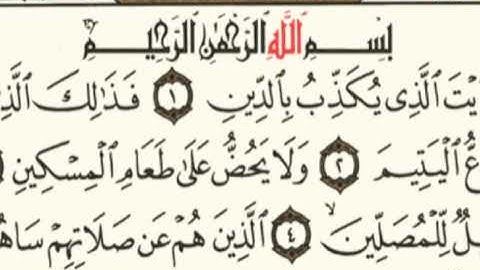 بِسْمِ ٱللَّهِ ٱلرَّحْمَٰنِ ٱلرَّحِيمِ
ٱلَّذِى يُكَذِّبُ بِٱلدِّينِ ١ فَذَٰلِكَ
ٱلْيَتِيمَ ٢ وَلَا يَحُضُّ عَلَىٰ طَعَامِ ٱلْمِسْكِينِ
لِّلْمُصَلِّينَ ٤ ٱلَّذِينَ هُمْ عَن صَلَاتِهِمْ